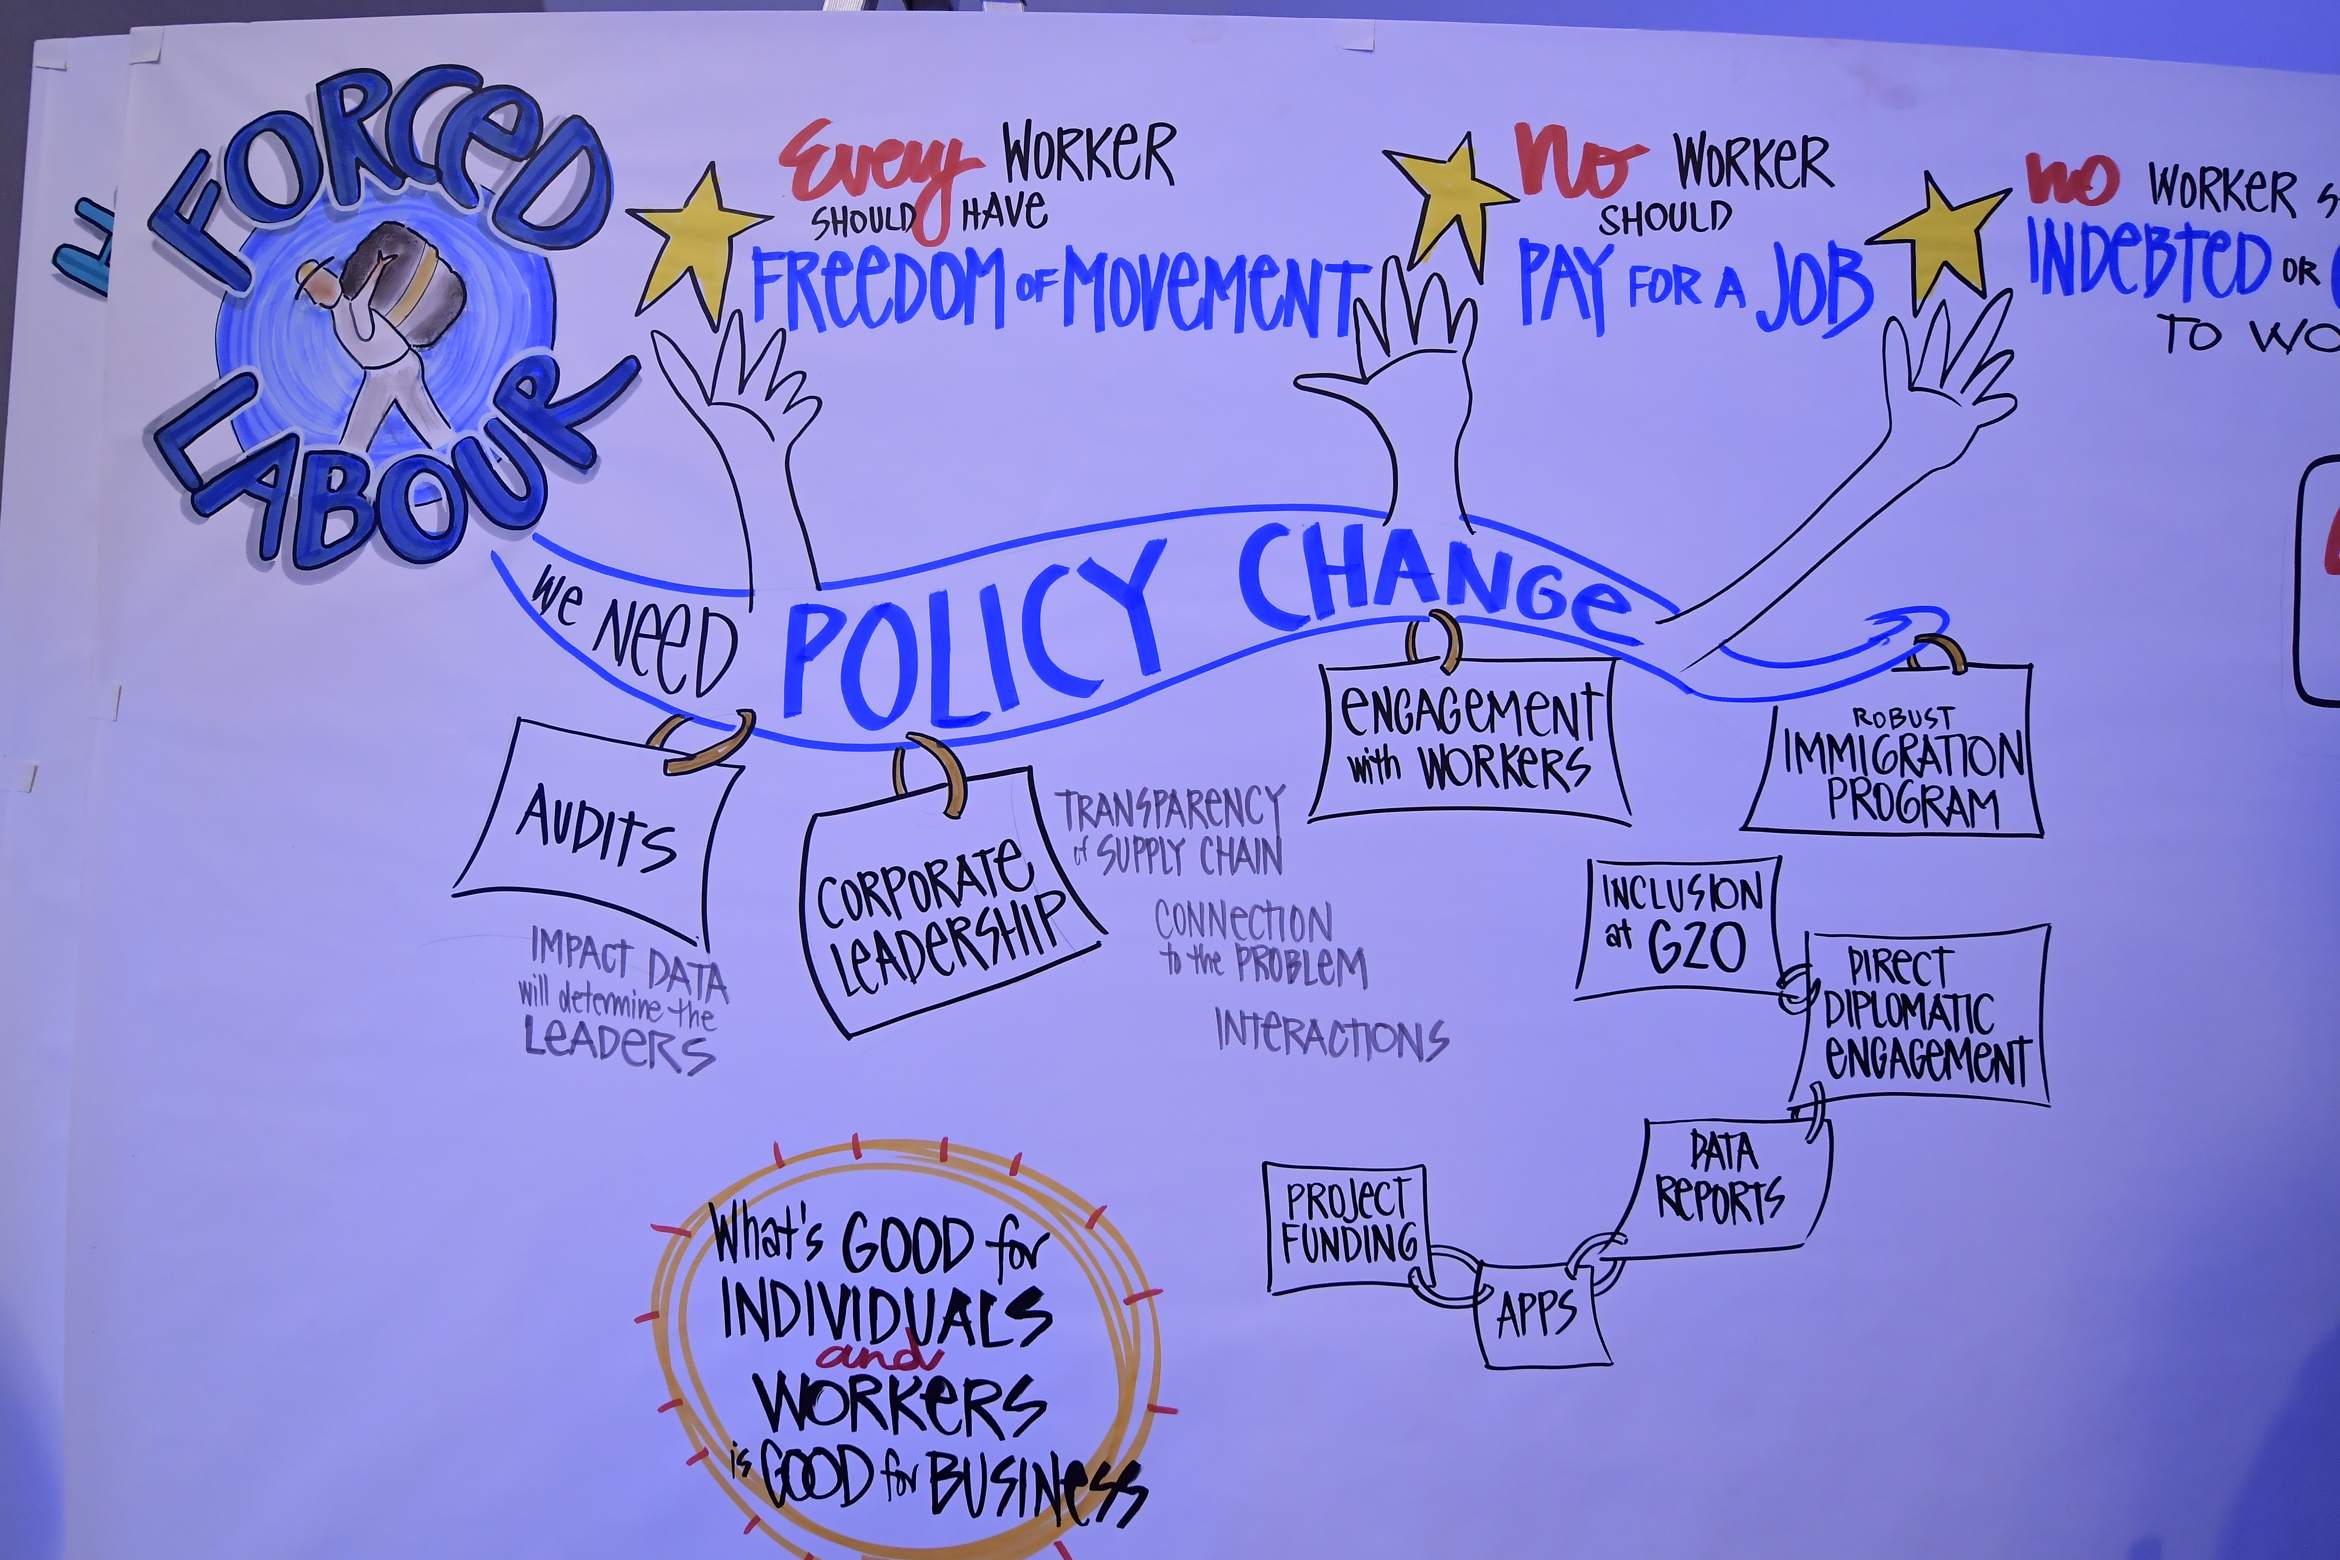 FORCED
LABOUR
Every WORKER
SHOULD HAVE
FREEDOM OF MOVEMENT
No WORKER
SHOULD
PAY FOR A JOB
NO WORKER
INDEBTED OR
TO
We NEED POLICY CHANGE
AUDITS
IMPACT DATA
will determine the
LEADERS
CORPORATE
LEADERSHIP
TRANSPARENCY
of SUPPLY CHAIN
CONNECTION
to the PROBLEM
INTERACTIONS
ENGAGEMENT
with WORKERS
ROBUST
IMMIGRATION
PROGRAM
INCLUSION
at G20
DIRECT
DIPLOMATIC
ENGAGEMENT
DATA
REPORTS
APPS
PROJECT
FUNDING
What's GOOD for
INDIVIDUALS
and
WORKERS
is GOOD for BUSINESS